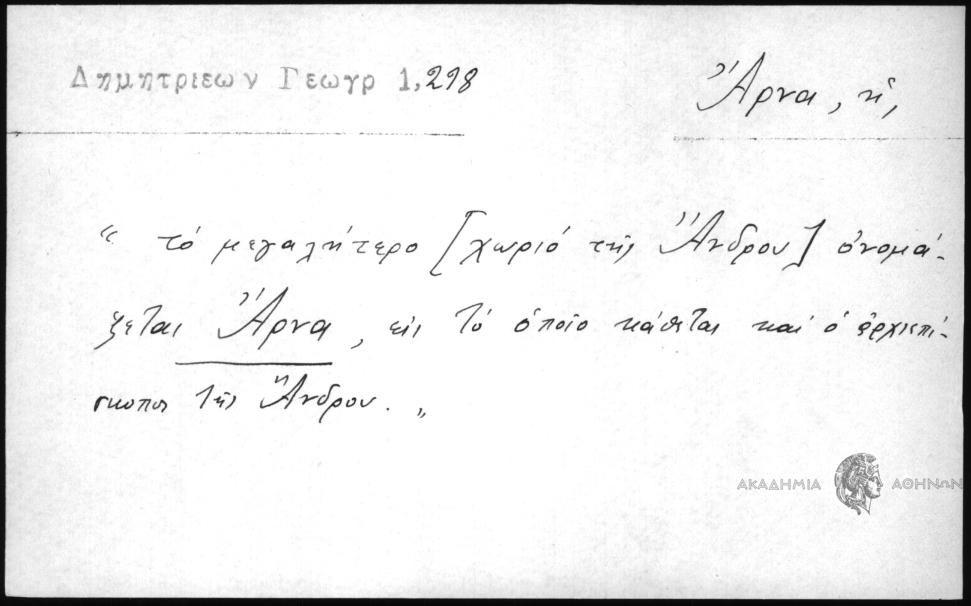 Δημητριεων Γεωγρ 1,298
Ἄρνα, ἡ,
“ τό μεγαλήτερο [χωριό τῆς Ἄνδρου] ὀνομά-
ζεται Ἄρνα, εἰς τό ὁποῖο κάθεται καί ὁ ἀρχιεπί-
σκοπος τῆς Ἄνδρου. „
ΑΚΑΔΗΜΙΑ ΑΘΗΝΩΝ